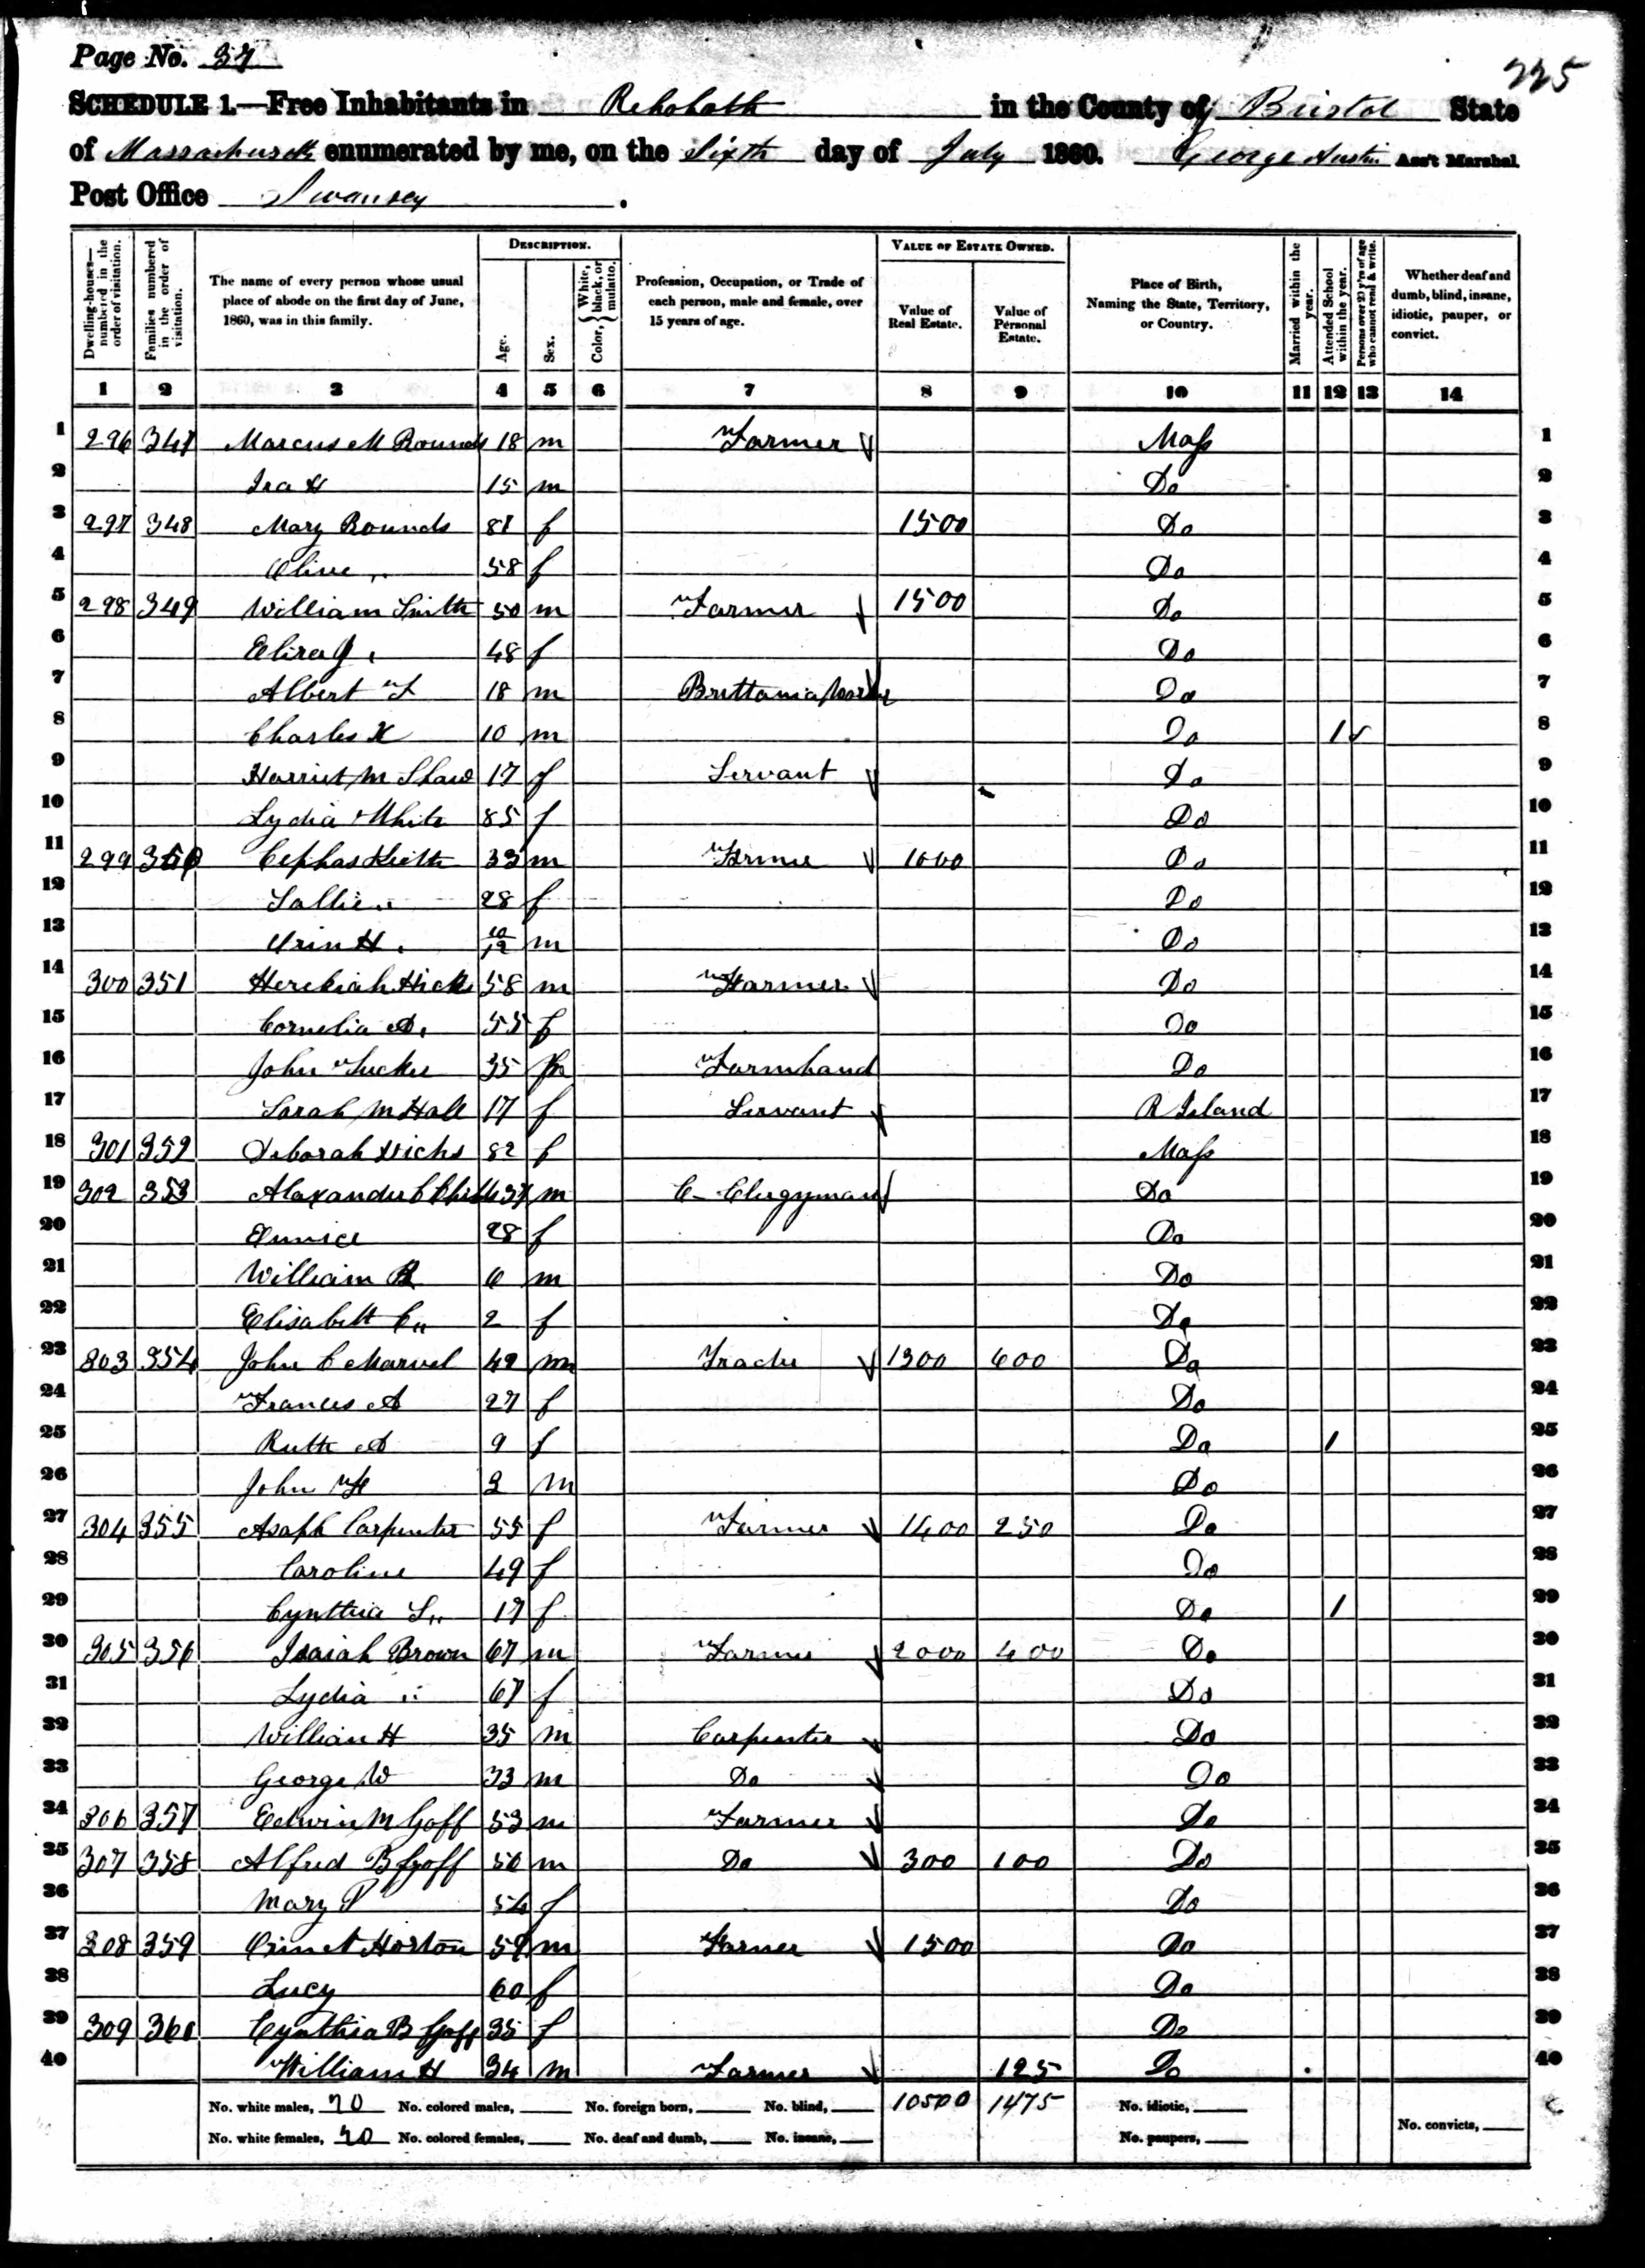 Page No. 37
225
SCHEDULE 1.—Free Inhabitants in Rehoboth in the County of Bristol State
of Massachusetts enumerated by me, on the Sixth day of July 1860. George Austin Ass't Marshal.
Post Office Swansey.
Dwelling-houses—numbered in the order of visitation.
Families numbered in the order of visitation.
The name of every person whose usual place of abode on the first day of June, 1860, was in this family.
DESCRIPTION.
Age.
Sex.
Color, { White, black, or mulatto.
Profession, Occupation, or Trade of each person, male and female, over 15 years of age.
VALUE OF ESTATE OWNED.
Value of Real Estate.
Value of Personal Estate.
Place of Birth, Naming the State, Territory, or Country.
Married within the year.
Attended School within the year.
Persons over 20 y'rs of age who cannot read & write.
Whether deaf and dumb, blind, insane, idiotic, pauper, or convict.
1 2 3 4 5 6 7 8 9 10 11 12 13 14
1 296 347 Marcus M Rounds 18 m Farmer Mass 1
2 Ira H 15 m Do 2
3 297 348 Mary Rounds 81 f 1500 Do 3
4 Olive " 58 f Do 4
5 298 349 William Smith 50 m Farmer 1500 Do 5
6 Eliza J " 48 f Do 6
7 Albert F 18 m Brittania Worker Do 7
8 Charles K 10 m Do 1 8
9 Harriet M Shaw 17 f Servant Do 9
10 Lydia White 85 f Do 10
11 299 350 Cephas 33 m Farmer 1000 Do 11
12 Sallie " 28 f Do 12
13 Urin H. 10/12 m Do 13
14 300 351 Hezekiah Hicks 58 m Farmer Do 14
15 Cornelia A. 55 f Do 15
16 John Tucker 35 m Farmhand Do 16
17 Sarah M Hall 17 f Servant R Island 17
18 301 352 Deborah Hicks 82 f Mass 18
19 302 353 Alaxander C 37 m C- Clergyman Do 19
20 Eunice 28 f Do 20
21 William B 6 m Do 21
22 Elisabeth C " 2 f Do 22
23 303 354 John C Marvel 42 m Trader 1300 600 Do 23
24 Frances A 27 f Do 24
25 Ruth A 9 f Do 1 25
26 John H 3 m Do 26
27 304 355 Asaph Carpenter 55 f Farmer 1400 250 Do 27
28 Caroline 49 f Do 28
29 Cynthia S " 17 f Do 1 29
30 305 356 Isaiah Brown 67 m Farmer 2000 400 Do 30
31 Lydia " 67 f Do 31
32 William H 35 m Carpenter Do 32
33 George W 33 m Do Do 33
34 306 357 Edwin M Goff 53 m Farmer Do 34
35 307 358 Alfred B Goff 50 m Do 300 100 Do 35
36 Mary P 54 f Do 36
37 308 359 Horton 59 m Farmer 1500 Do 37
38 Lucy 60 f Do 38
39 309 360 Cynthia B Goff 35 f Do 39
40 William H 34 m Farmer 125 Do 40
No. white males, 20 No. colored males, No. foreign born, No. blind, 10500 1475 No. idiotic,
No. white females, 20 No. colored females, No. deaf and dumb, No. insane, No. paupers, No. convicts,